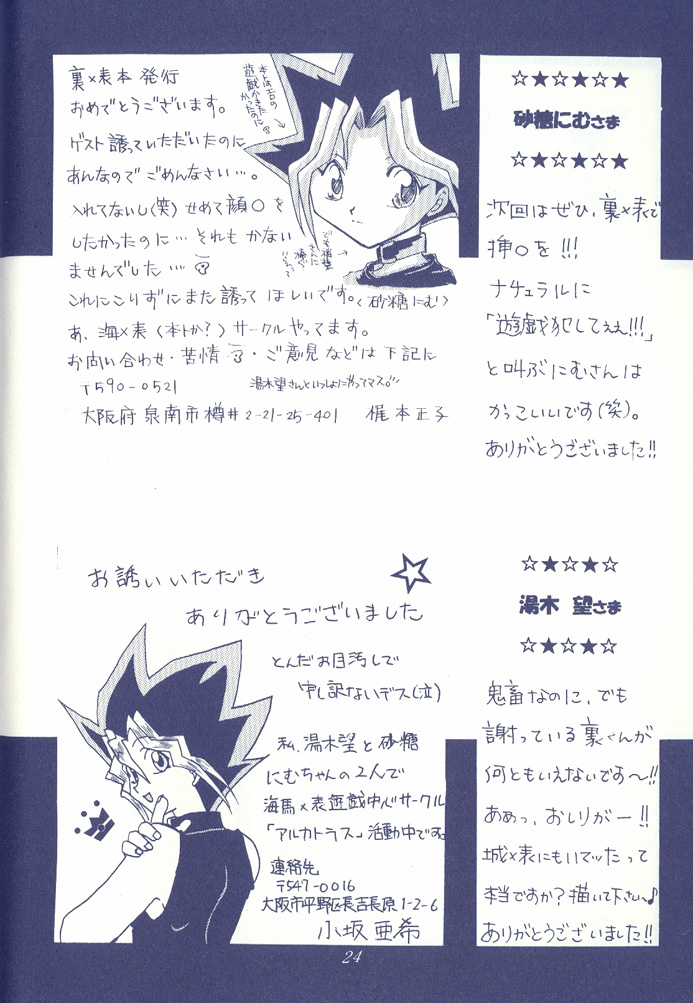 裏×表本 発行
おめでとうございます。
ゲスト誘っていただいたのに
あんなので ごめんなさい…。
入れてないし(笑) せめて顔○を
したかったのに… それも かない
ませんでした…
これにこりずにまた誘って ほしいです。(砂糖にむ)
あ、海×表(本トか?)サークルやってます。
お問い合わせ・苦情・ご意見などは下記に
〒590-0521
湯木望さんといっしょにやってマス。
大阪府泉南市樽井2-21-25-401 梶本正子
本トはエロの
遊戯かきた
かったのに
☆★☆★☆★
砂糖にむさま
☆★☆★☆★
次回はぜひ、裏×表で
挿○を!!!
ナチュラルに
「遊戯犯してぇぇ!!!」
と叫ぶにむさんは
かっこいいです(笑)。
ありがとうございました!!
お誘いいただき
ありがとうございました
とんだお目汚しで
申し訳ないデス(泣)
私、湯木望と砂糖
にむちゃんの2人で
海馬×表遊戯中心サークル
「アルカトラス」活動中です。
連絡先
〒547-0016
大阪市平野区長吉長原1-2-6
小坂亜希
☆★☆★☆
湯木 望さま
☆★☆★☆
鬼畜なのに、でも
謝っている裏くんが
何ともいえないです〜!!
ああっ、おしりがー!!
城×表にもいてッたって
本当ですか?描いて下さい〜♪
ありがとうございました!!
24